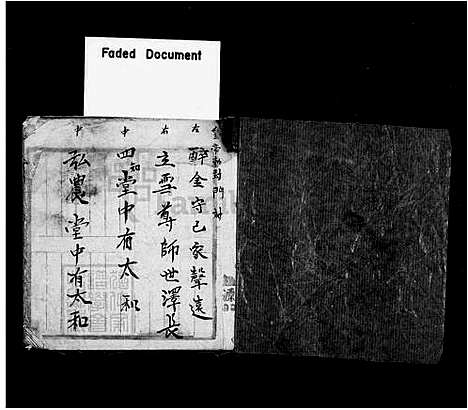 Faded Document
左
辭金守己家聲遠
右
立雪尊師世澤長
中
四知堂中有太和
中
弘農堂中有太和